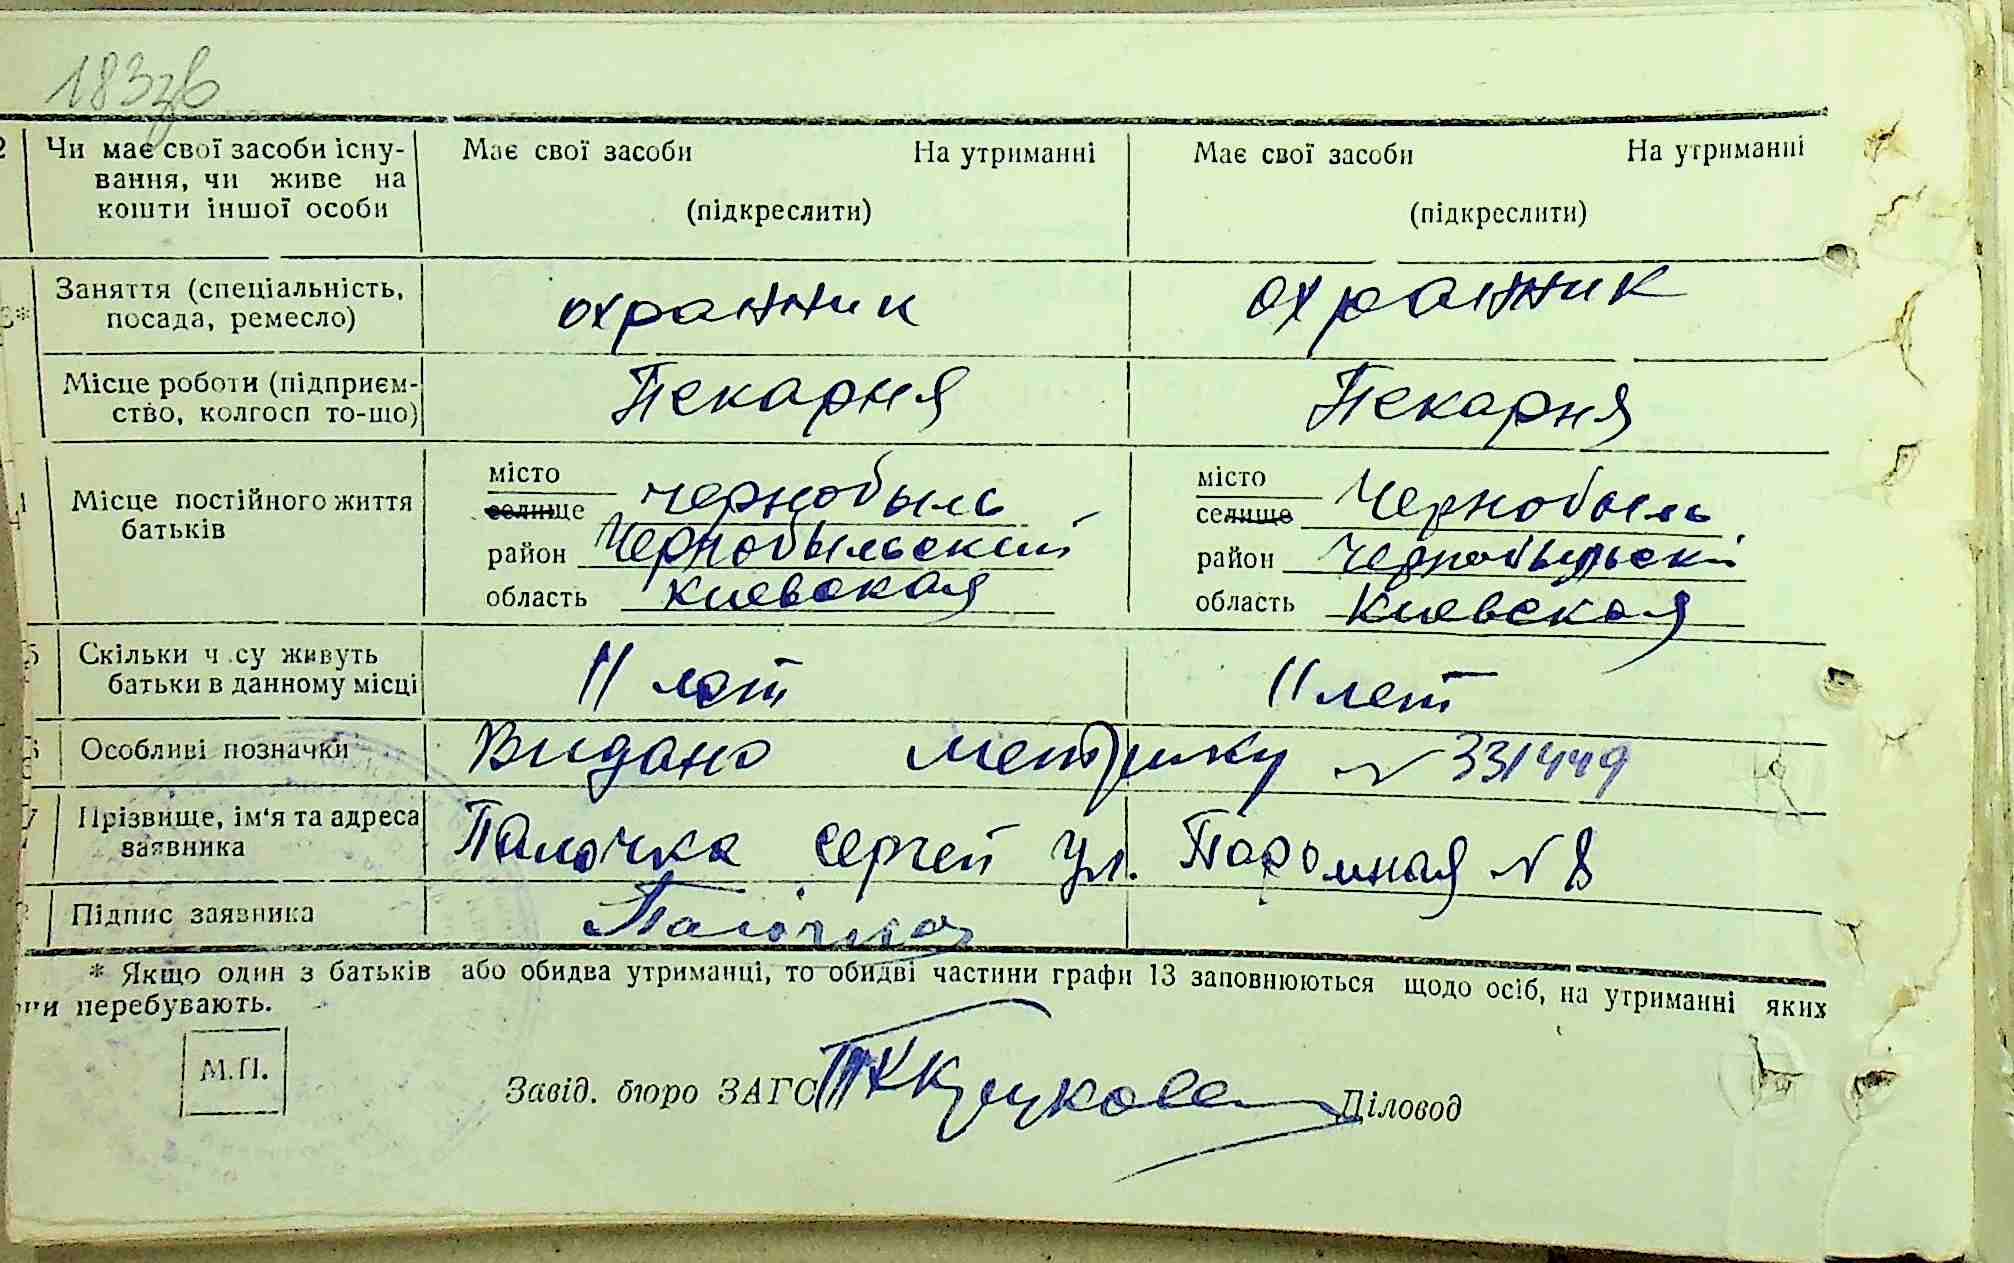 183зв
2 Чи має свої засоби існу- Має свої засоби На утриманні Має свої засоби На утриманні
вання, чи живе на
кошти іншої особи (підкреслити) (підкреслити)
Заняття (спеціальність, охранник охранник
3* посада, ремесло)
Місце роботи (підприєм- Пекарня Пекарня
ство, колгосп то-що)
місто Чернобыль місто Чернобыль
4 Місце постійного життя селище селище
батьків район Чернобыльский район Чернобыльски
область Киевская область Киевская
5 Скільки ч су живуть 11 лет 11 лет
батьки в данному місці
6 Особливі позначки Видано метрику № 331449
7 Прізвище, ім'я та адреса Палочка Сергей ул. Паромная № 8
заявника
Підпис заявника Палочка
* Якщо один з батьків або обидва утриманці, то обидві частини графи 13 заповнюються щодо осіб, на утриманні яких
они перебувають.
М.П.
Завід. бюро ЗАГС Діловод